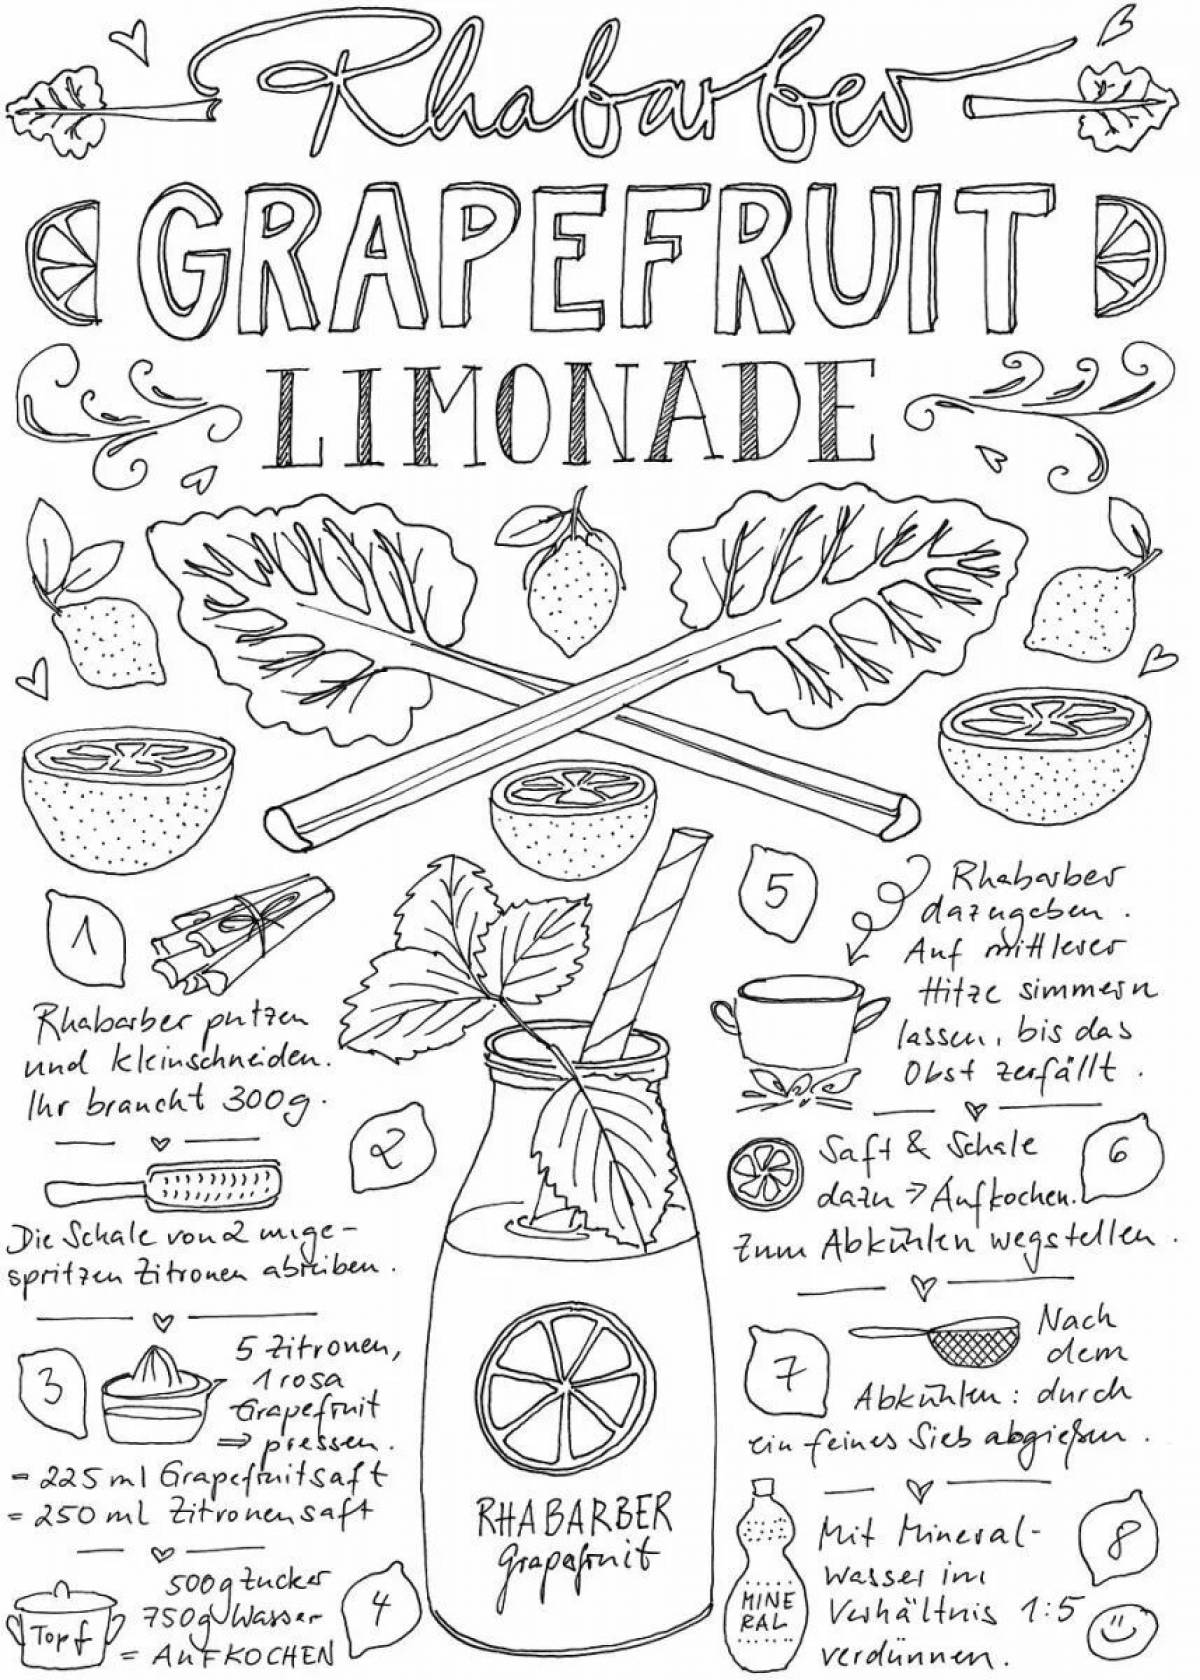 Rhabarber
GRAPEFRUIT
LIMONADE
1
Rhabarber putzen
und kleinschneiden.
Ihr braucht 300g.
2
Die Schale von 2 unge-
spritzen Zitronen abreiben.
3
5 Zitronen,
1 rosa
Grapefruit
⇒ pressen.
= 225 ml Grapefruitsaft
= 250 ml Zitronensaft
4
Topf
500g Zucker
750g Wasser
= AUFKOCHEN
RHABARBER
Grapefruit
5
Rhabarber
dazugeben.
Auf mittlerer
Hitze simmern
lassen, bis das
Obst zerfällt.
6
Saft & Schale
dazu → Aufkochen.
Zum Abkühlen wegstellen.
7
Nach
dem
Abkühlen: durch
ein feines Sieb abgießen.
8
MINE
RAL
Mit Mineral-
wasser im
Verhältnis 1:5
verdünnen.